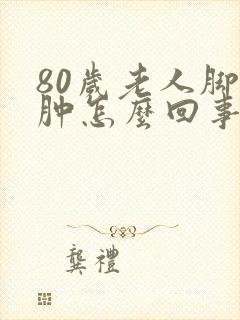 80歲老人脚
肿怎麼回事
龔禮